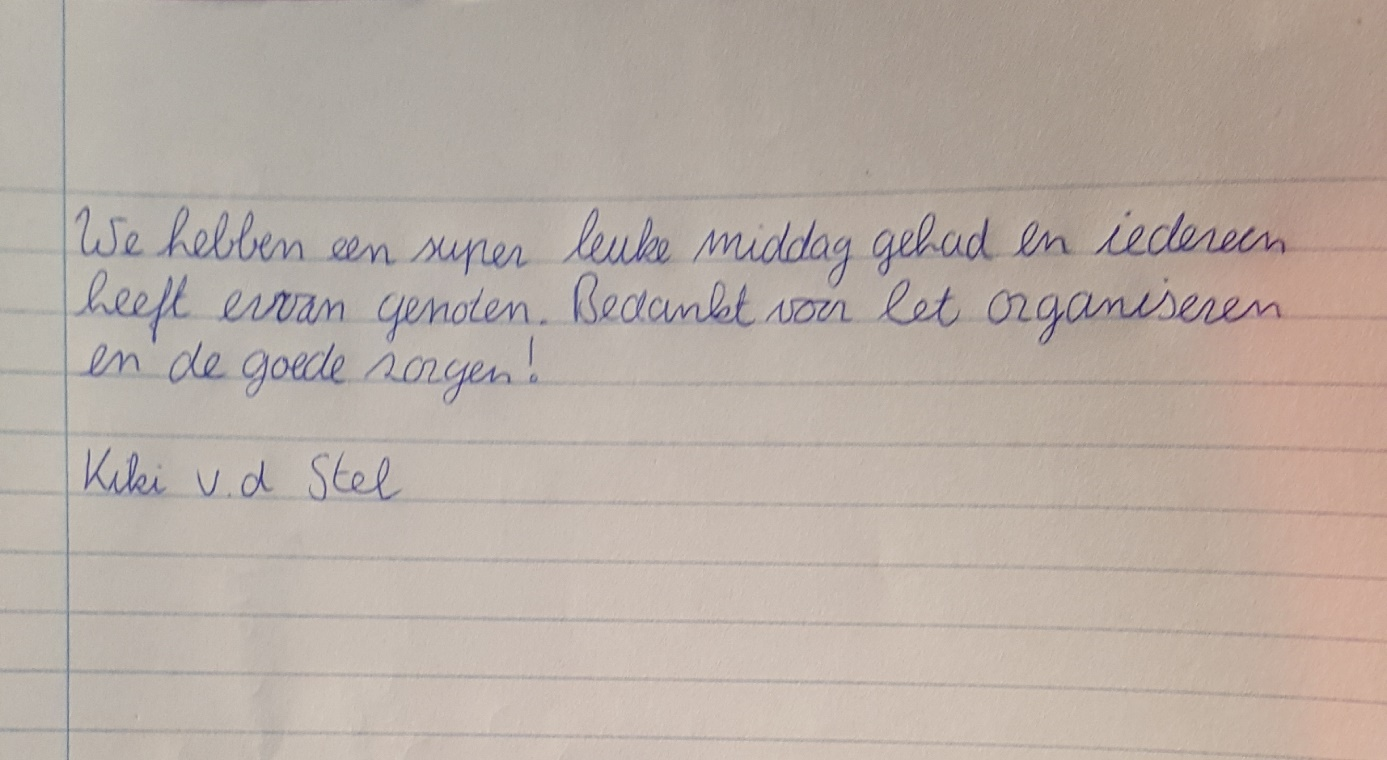 We hebben een super leuke middag gehad en iedereen
heeft ervan genoten. Bedankt voor het organiseren
en de goede zorgen!
Kiki v.d Stel